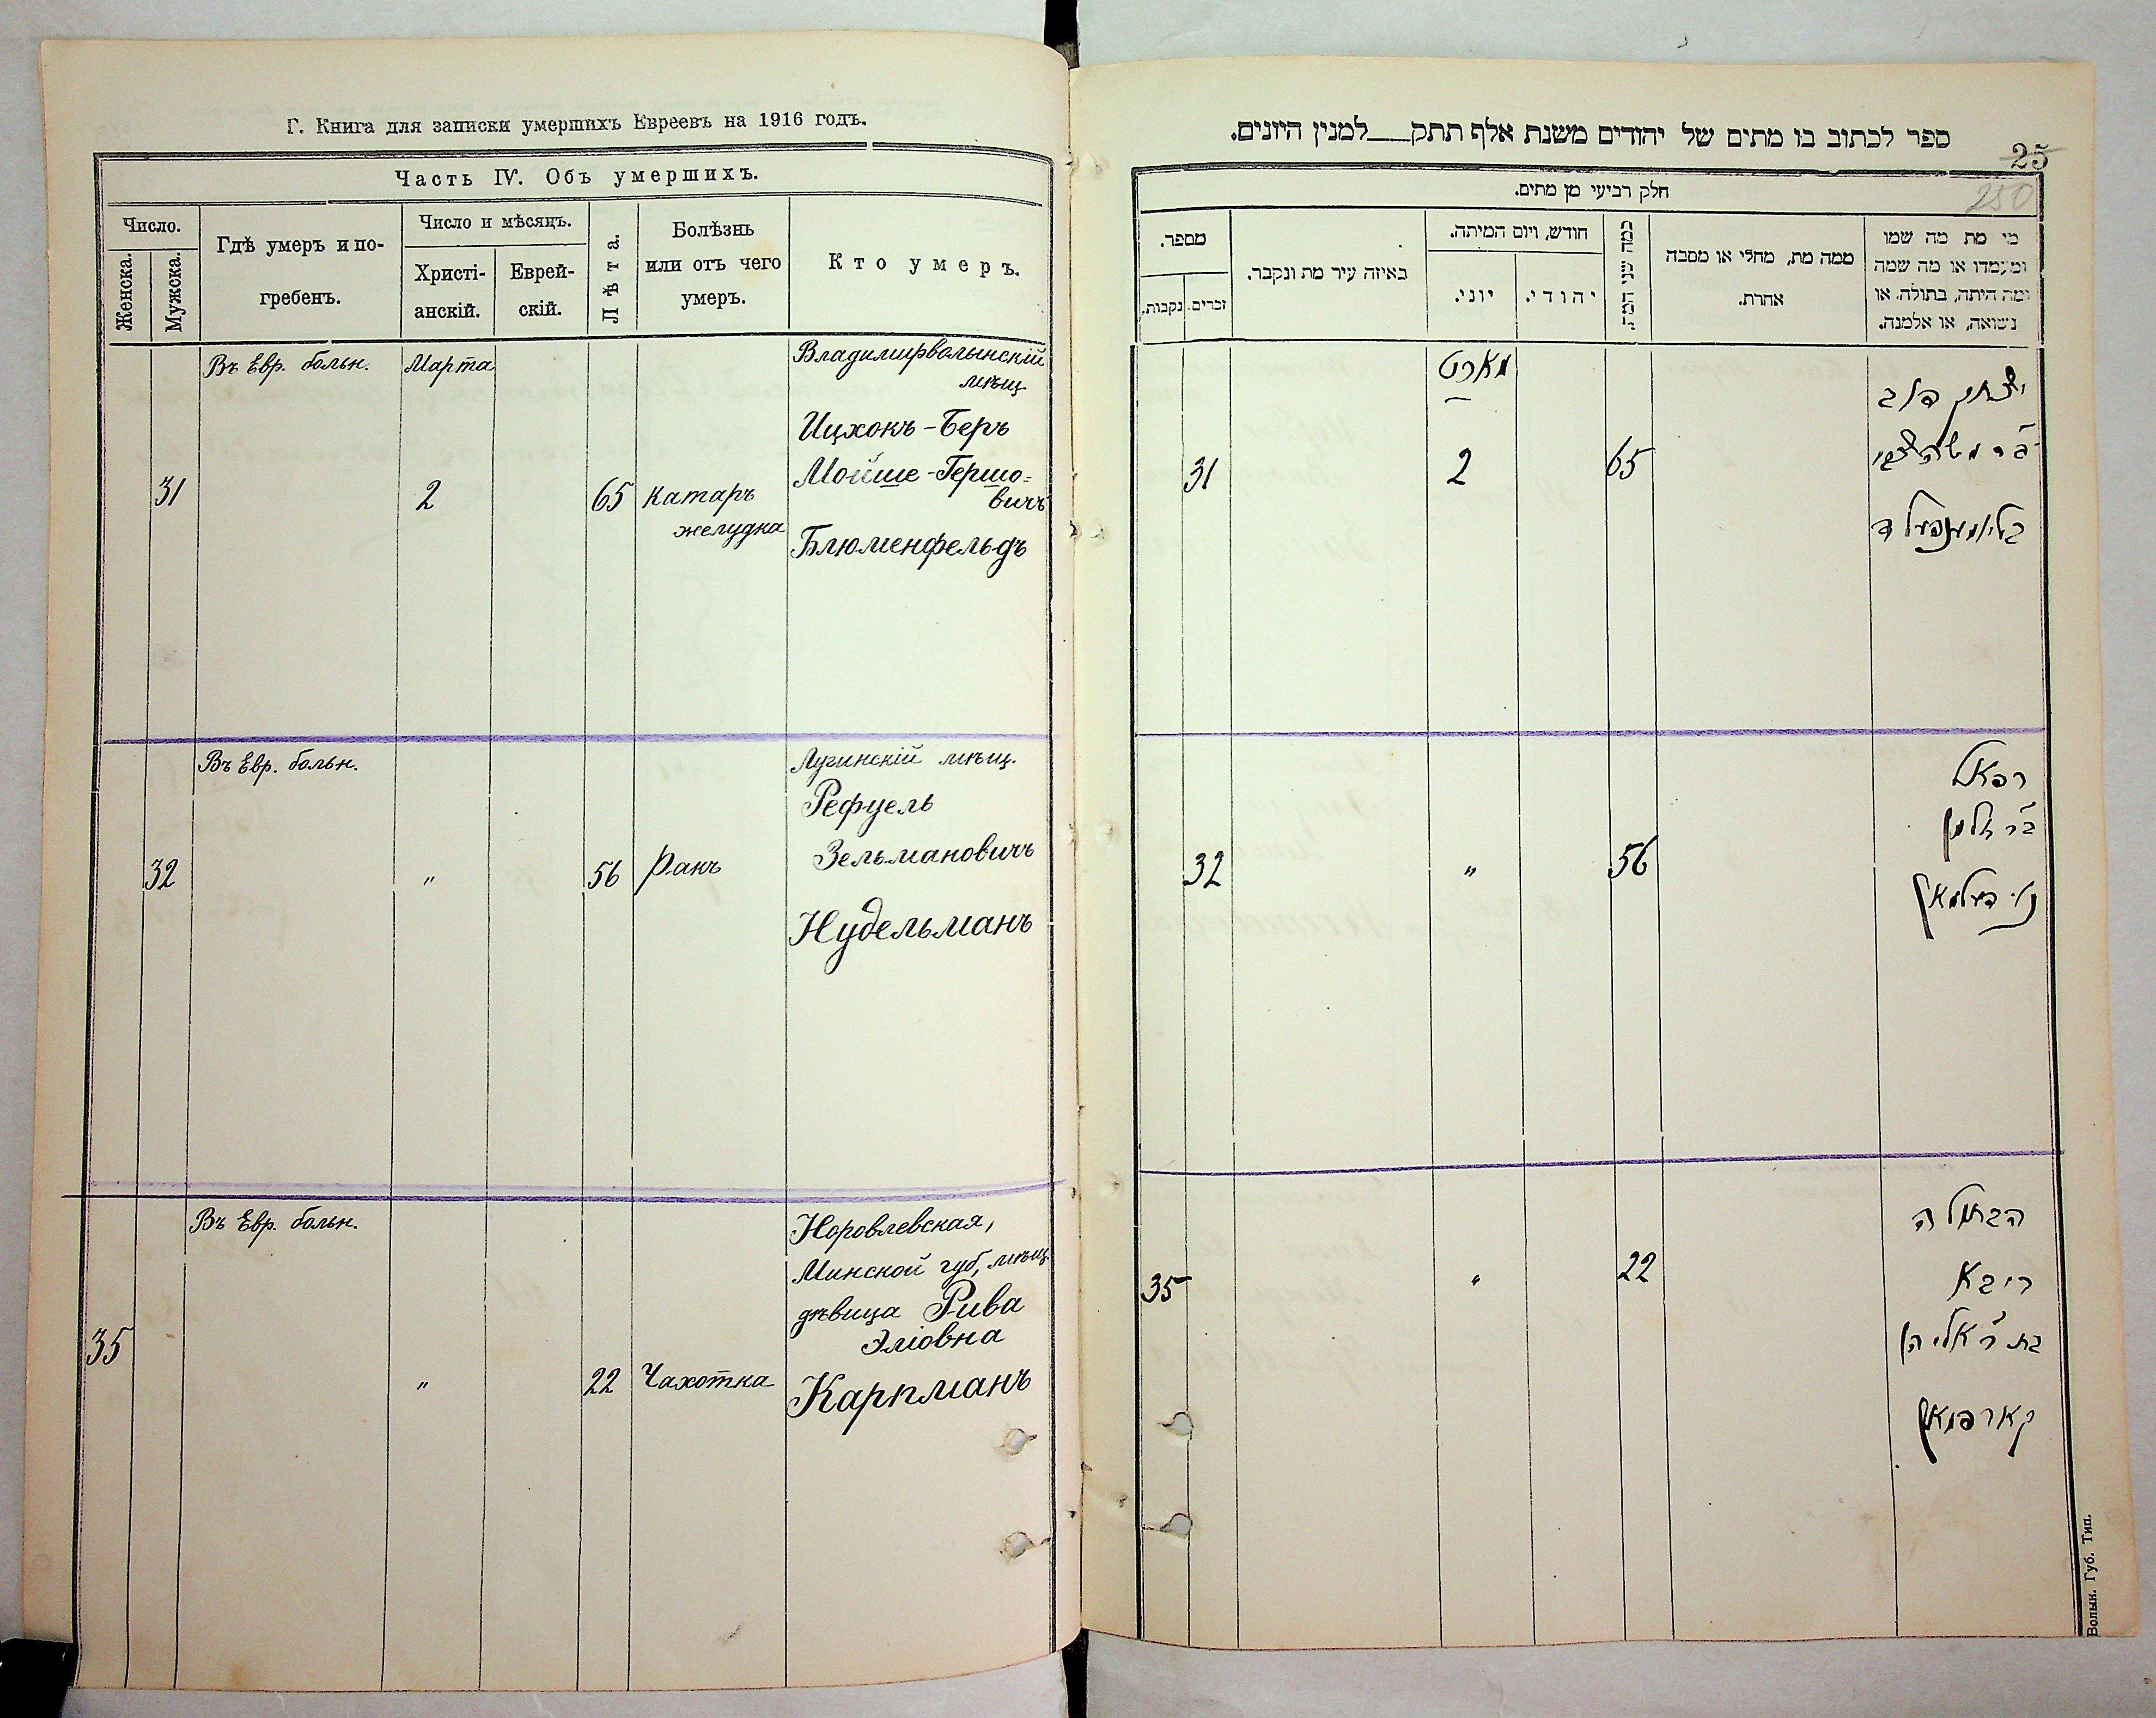 Г. Книга для записки умершихъ Евреевъ на 1916 годъ.
Часть IV. Объ умершихъ.
Число.
Женска.
Мужска.
Гдѣ умеръ и по-
гребенъ.
Число и мѣсяцъ.
Христі-
анскій.
Еврей-
скій.
Лѣта.
Болѣзнь
или отъ чего
умеръ.
Кто умеръ.
Въ Евр. больн.
Марта
Владимирволынскій
мѣщ
Ицхокъ-Беръ
Мойше-Гершо=
вичъ
31
2
65
Катаръ
желудка
Блюменфельдъ
Въ Евр. больн.
Лугинскій мѣщ.
Рефуель
Зельмановичъ
32
"
56
Ракъ
Нудельманъ
Въ Евр. больн.
Норовлевская,
Минской губ, мѣщ.
дѣвица Рива
Эліовна
35
"
22
Чахотка
Карпманъ
ספר לכתוב בו מתים של יהודים משנת אלף תתק___למנין היונים.
25
250
חלק רביעי מן מתים.
מי מת מה שמו
ומעמדו או מה שמה
ומה היתה, בתולה, או
נשואה, או אלמנה.
ממה מת, מחלי או מסבה
אחרת.
כמה שני המת.
חודש, ויום המיתה.
יהודי.
יוני.
באיזה עיר מת ונקבר.
מספר.
זכרים.
נקבות.
מארט
יצחק דוב
בר משה צבי
בליומענפעלד
65
2
31
רפאל
בר זלמן
נודעלמאן
56
"
32
הבתולה
ריבא
בת ר' אליהו
קארפמאן
22
"
35
Волын. Губ. Тип.